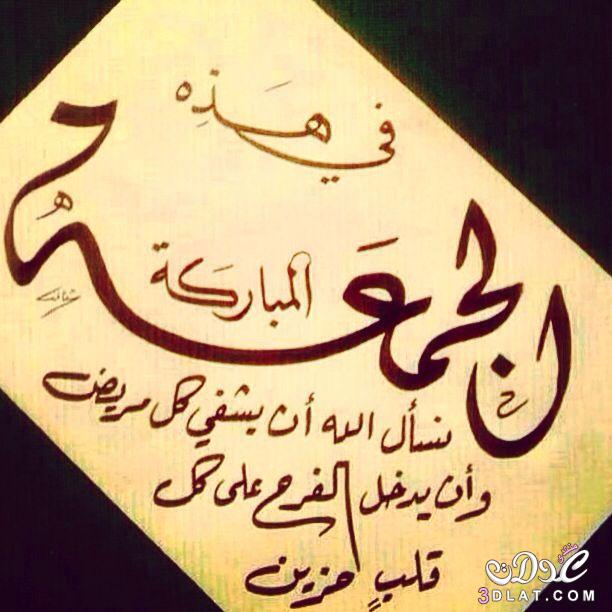 في هَذِه
الجمعَة
المباركَة
نسأل الله أن يشفي كل مريض
وأن يدخل الفرح على كل
قلبٍ حزين
منتدى
عدلات
3DLAT.COM